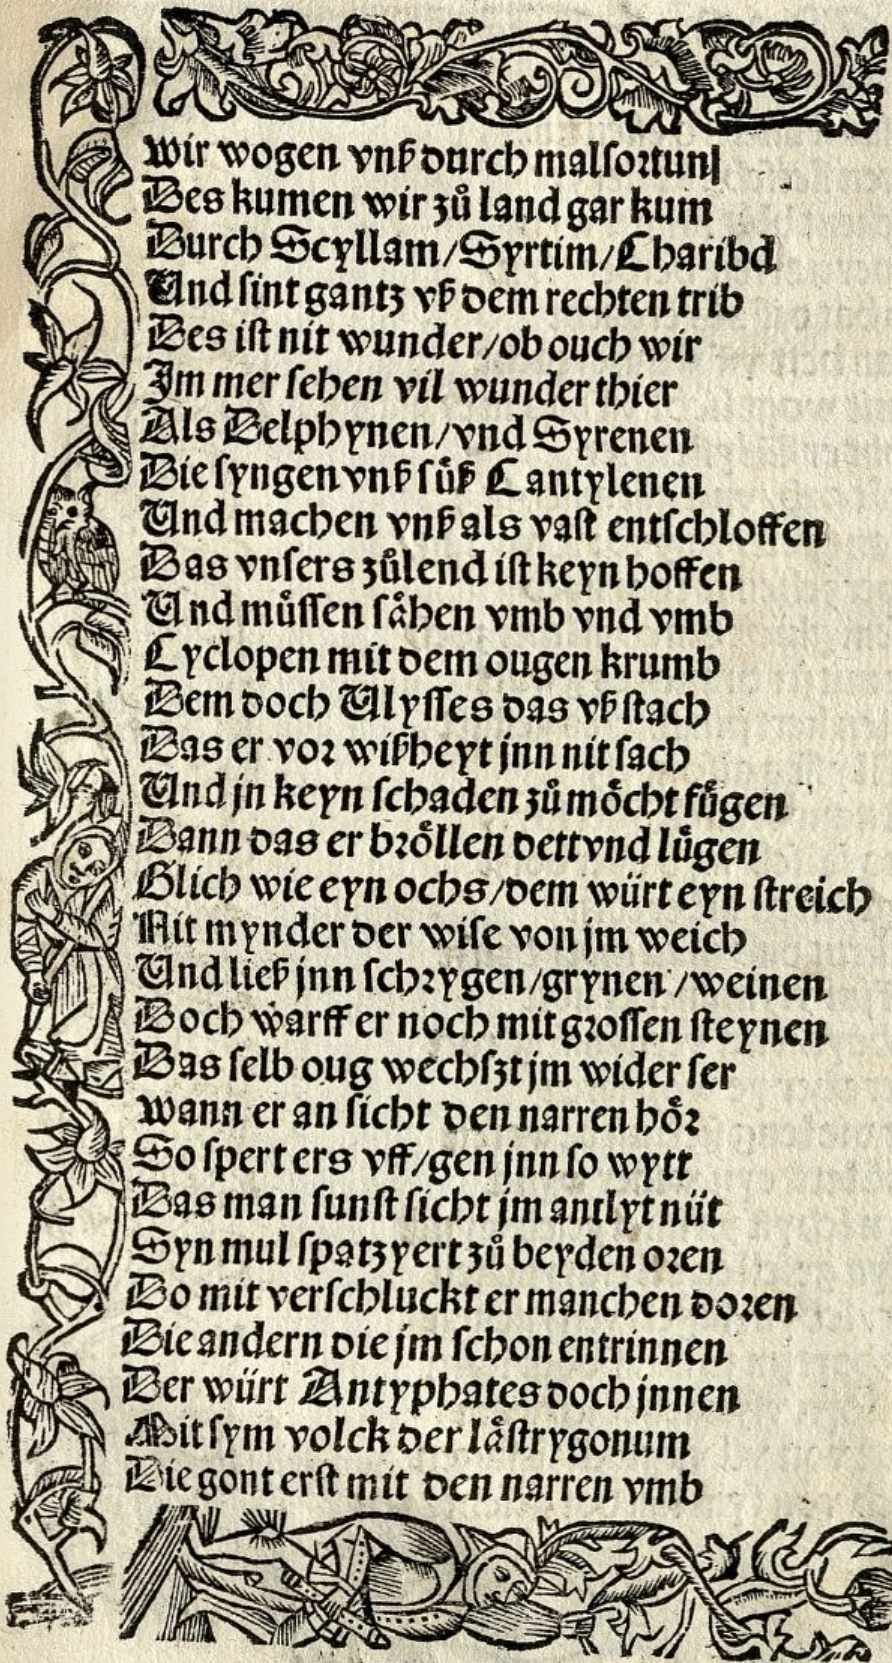 Wir wogen vnß durch malfortun
Des kumen wir zuͦ land gar kum
Durch Scyllam/Syrtim/Charibd
Und sint gantz vß dem rechten trib
Des ist nit wunder/ob ouch wir
Im mer sehen vil wunder thier
Als Delphynen/vnd Syrenen
Die syngen vnß suͤß Cantylenen
Und machen vnß als vast entschloffen
Das vnsers zuͦlend ist keyn hoffen
Und muͤssen saͤhen vmb vnd vmb
Cyclopen mit dem ougen krumb
Dem doch Ulysses das vß stach
Das er vor wißheyt jnn nit sach
Und jn keyn schaden zuͦ moͤcht fuͤgen
Dann das er broͤllen dett vnd luͤgen
Glich wie eyn ochs/dem würt eyn streich
Nit mynder der wise von jm weich
Und ließ jnn schrygen/grynen/weinen
Doch warff er noch mit grossen steynen
Das selb oug wechszt jm wider ser
Wann er an sicht den narren hoͤr
So spert ers vff/gen jnn so wytt
Das man sunst sicht jm antlyt nüt
Syn mul spatzyert zuͦ beyden oren
Do mit verschluckt er manchen doren
Die andern die jm schon entrinnen
Der würt Antyphates doch jnnen
Mit sym volck der laͤstrygonum
Die gont erst mit den narren vmb